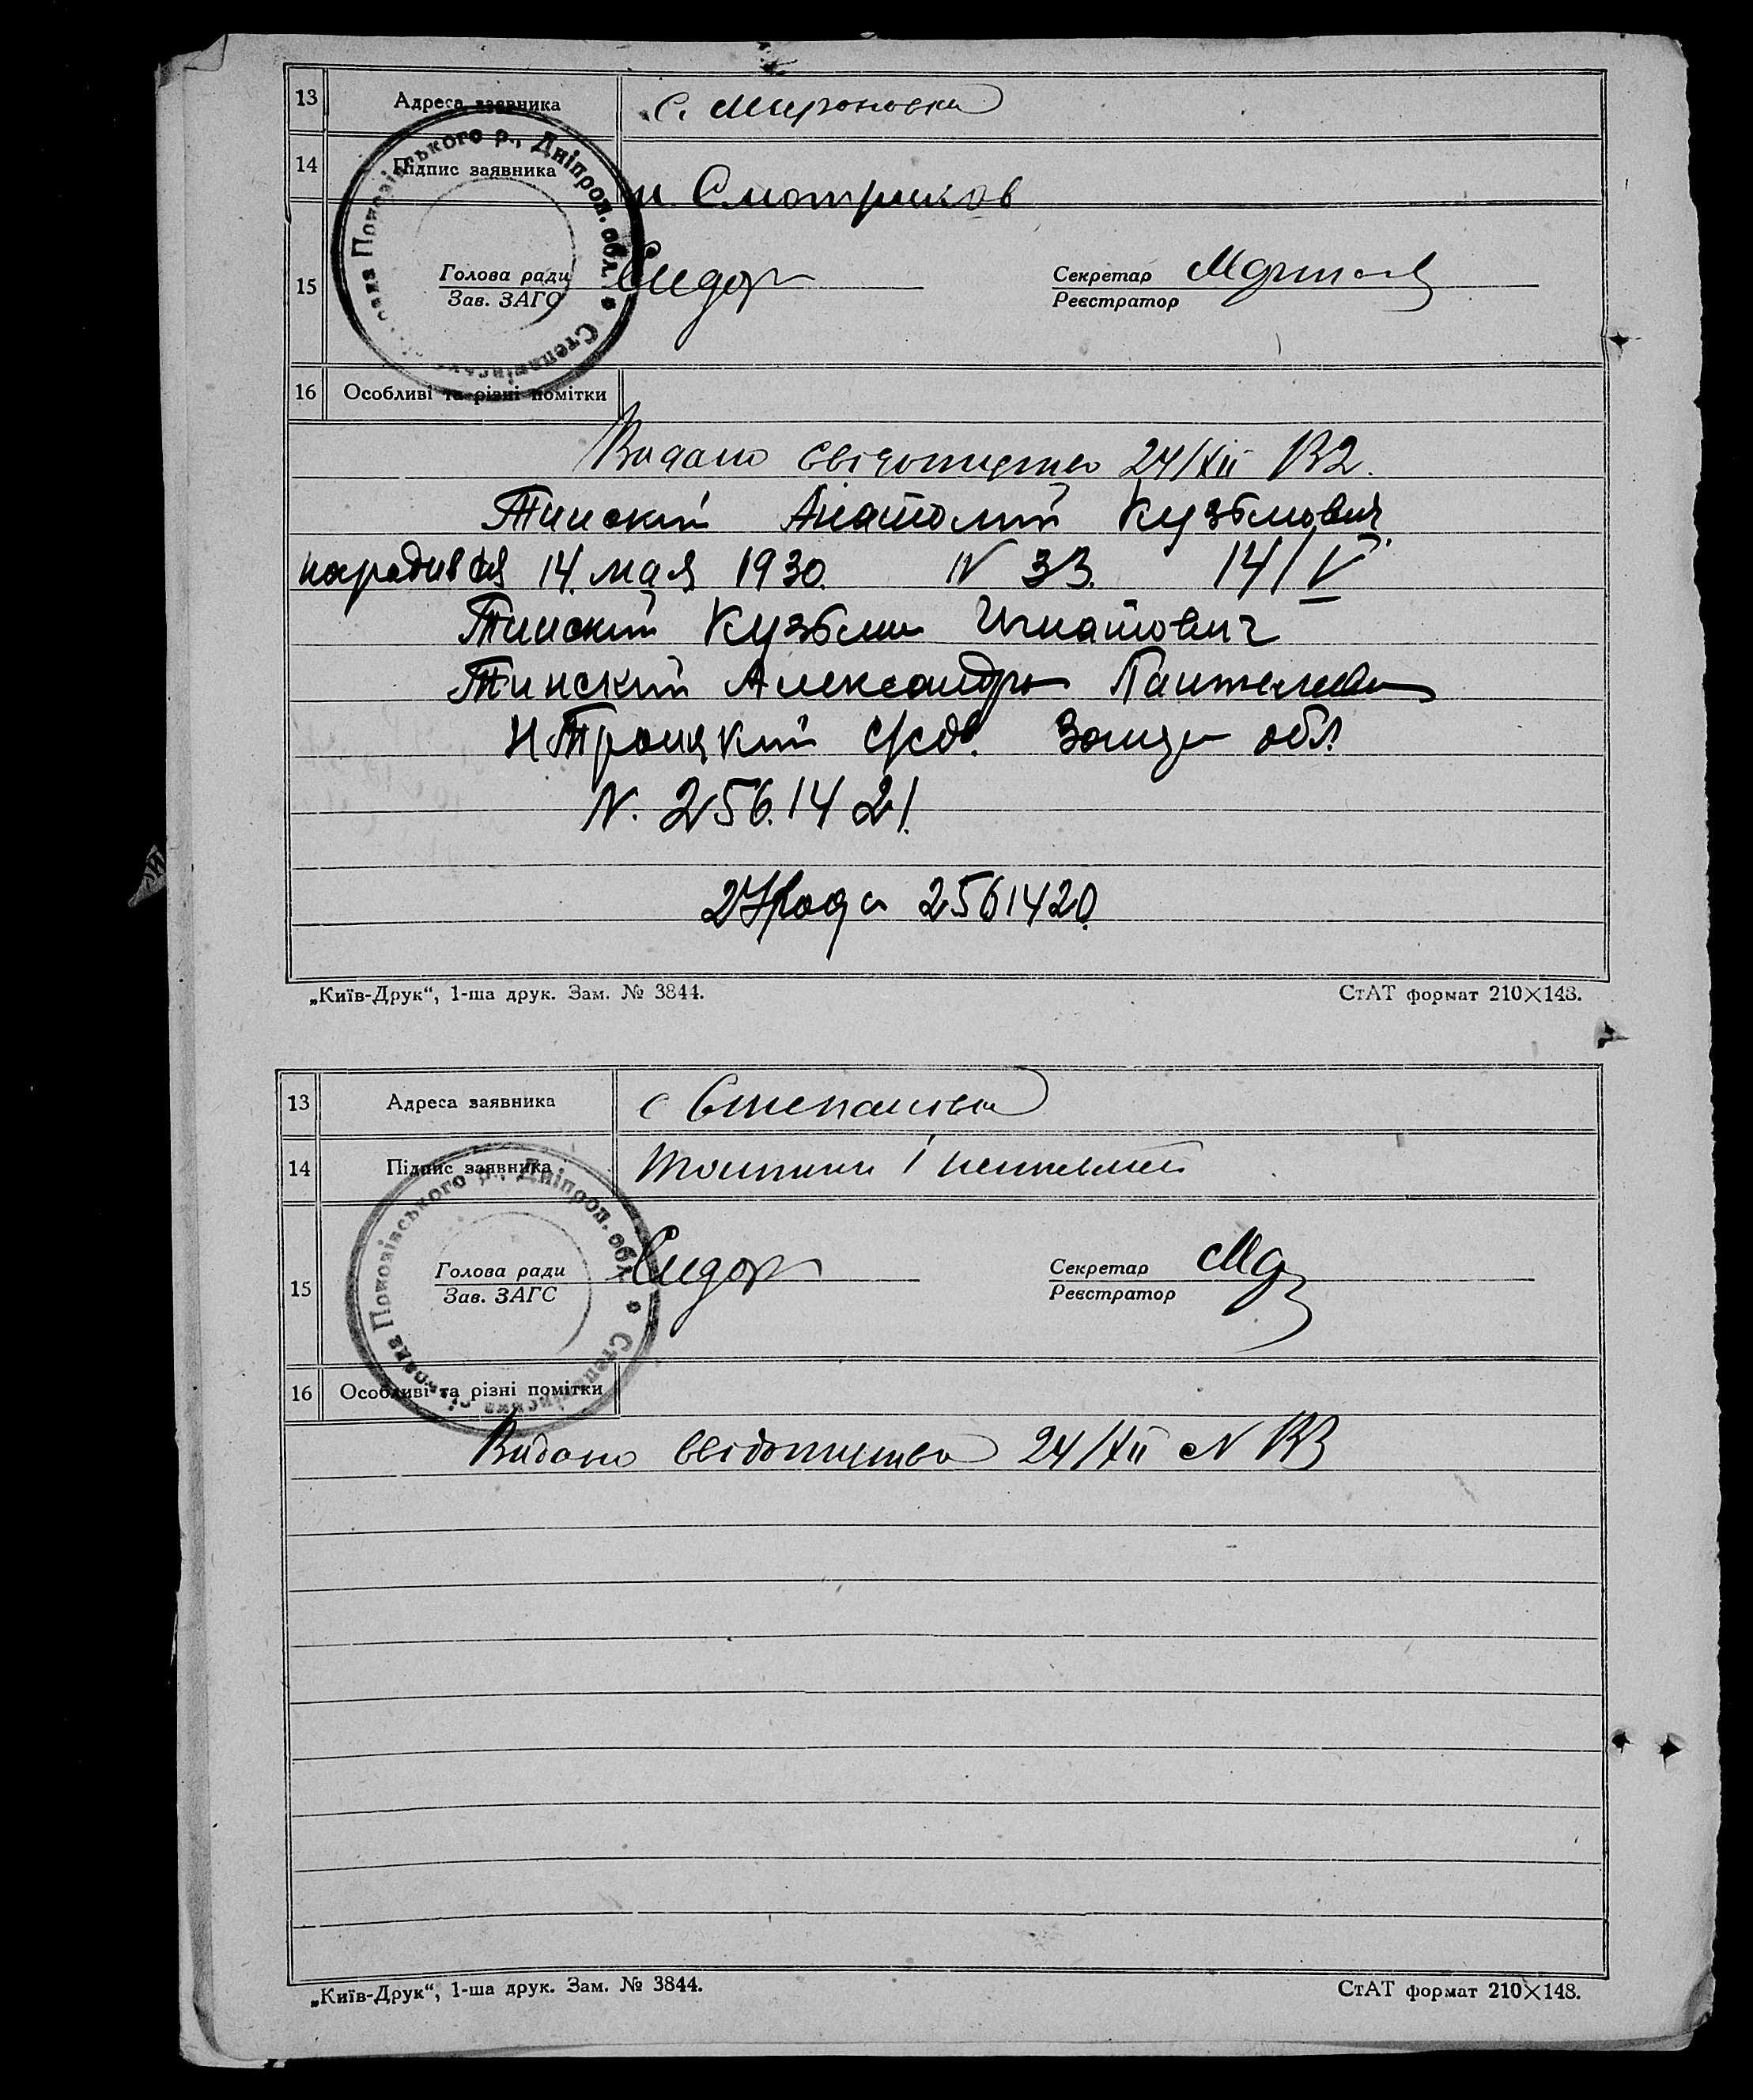 13 Адреса заявника с. Мироновка
14 Підпис заявника Смотриков
15 Голова ради Сидор Секретар
Зав. ЗАГС Реєстратор
Покровівського р., Дніпроп. обл. * Степанівська сільрада
16 Особливі та різні помітки
Видано свідоцтво 24/XII
Тинский Анатолий Кузьмович
народився 14 мая 1930. N 33. 14/V
Тинский Кузьма Игнатович
Тинский Александра
Н Троицкий с/сов. обл
N. 2561421.
2561420.
„Київ-Друк“, 1-ша друк. Зам. № 3844. СтАТ формат 210×148.
13 Адреса заявника с Степановка
14 Підпис заявника
15 Голова ради Сидор Секретар
Зав. ЗАГС Реєстратор
р., Дніпроп. обл. * Степанівська сільрада
16 Особливі та різні помітки
Видано свідоцтво 24/XII N
„Київ-Друк“, 1-ша друк. Зам. № 3844. СтАТ формат 210×148.